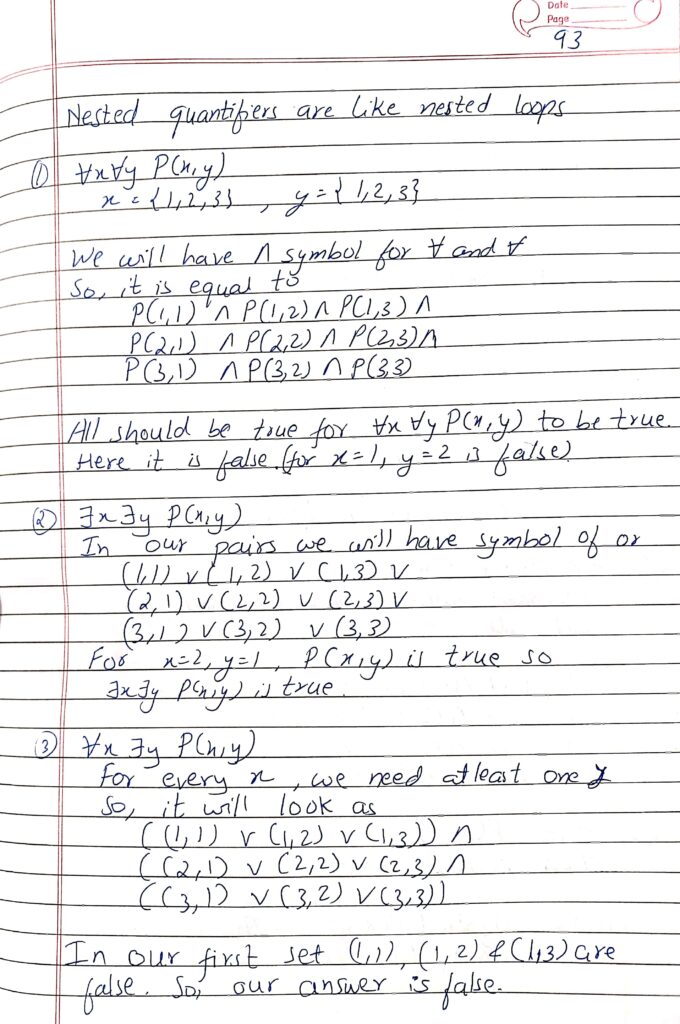 Date
Page
93
Nested quantifiers are like nested loops
① ∀x∀y P(x,y)
x = {1,2,3} , y = {1,2,3}
We will have ∧ symbol for ∀ and ∀
So, it is equal to
P(1,1) ∧ P(1,2) ∧ P(1,3) ∧
P(2,1) ∧ P(2,2) ∧ P(2,3) ∧
P(3,1) ∧ P(3,2) ∧ P(3,3)
All should be true for ∀x ∀y P(x,y) to be true.
Here it is false. (for x=1, y=2 is false)
② ∃x ∃y P(x,y)
In our pairs we will have symbol of or
(1,1) ∨ (1,2) ∨ (1,3) ∨
(2,1) ∨ (2,2) ∨ (2,3) ∨
(3,1) ∨ (3,2) ∨ (3,3)
For x=2, y=1, P(x,y) is true so
∃x∃y P(x,y) is true.
③ ∀x ∃y P(x,y)
for every x, we need atleast one y
So, it will look as
((1,1) ∨ (1,2) ∨ (1,3)) ∧
((2,1) ∨ (2,2) ∨ (2,3) ∧
((3,1) ∨ (3,2) ∨ (3,3))
In our first set (1,1), (1,2) & (1,3) are
false. So, our answer is false.